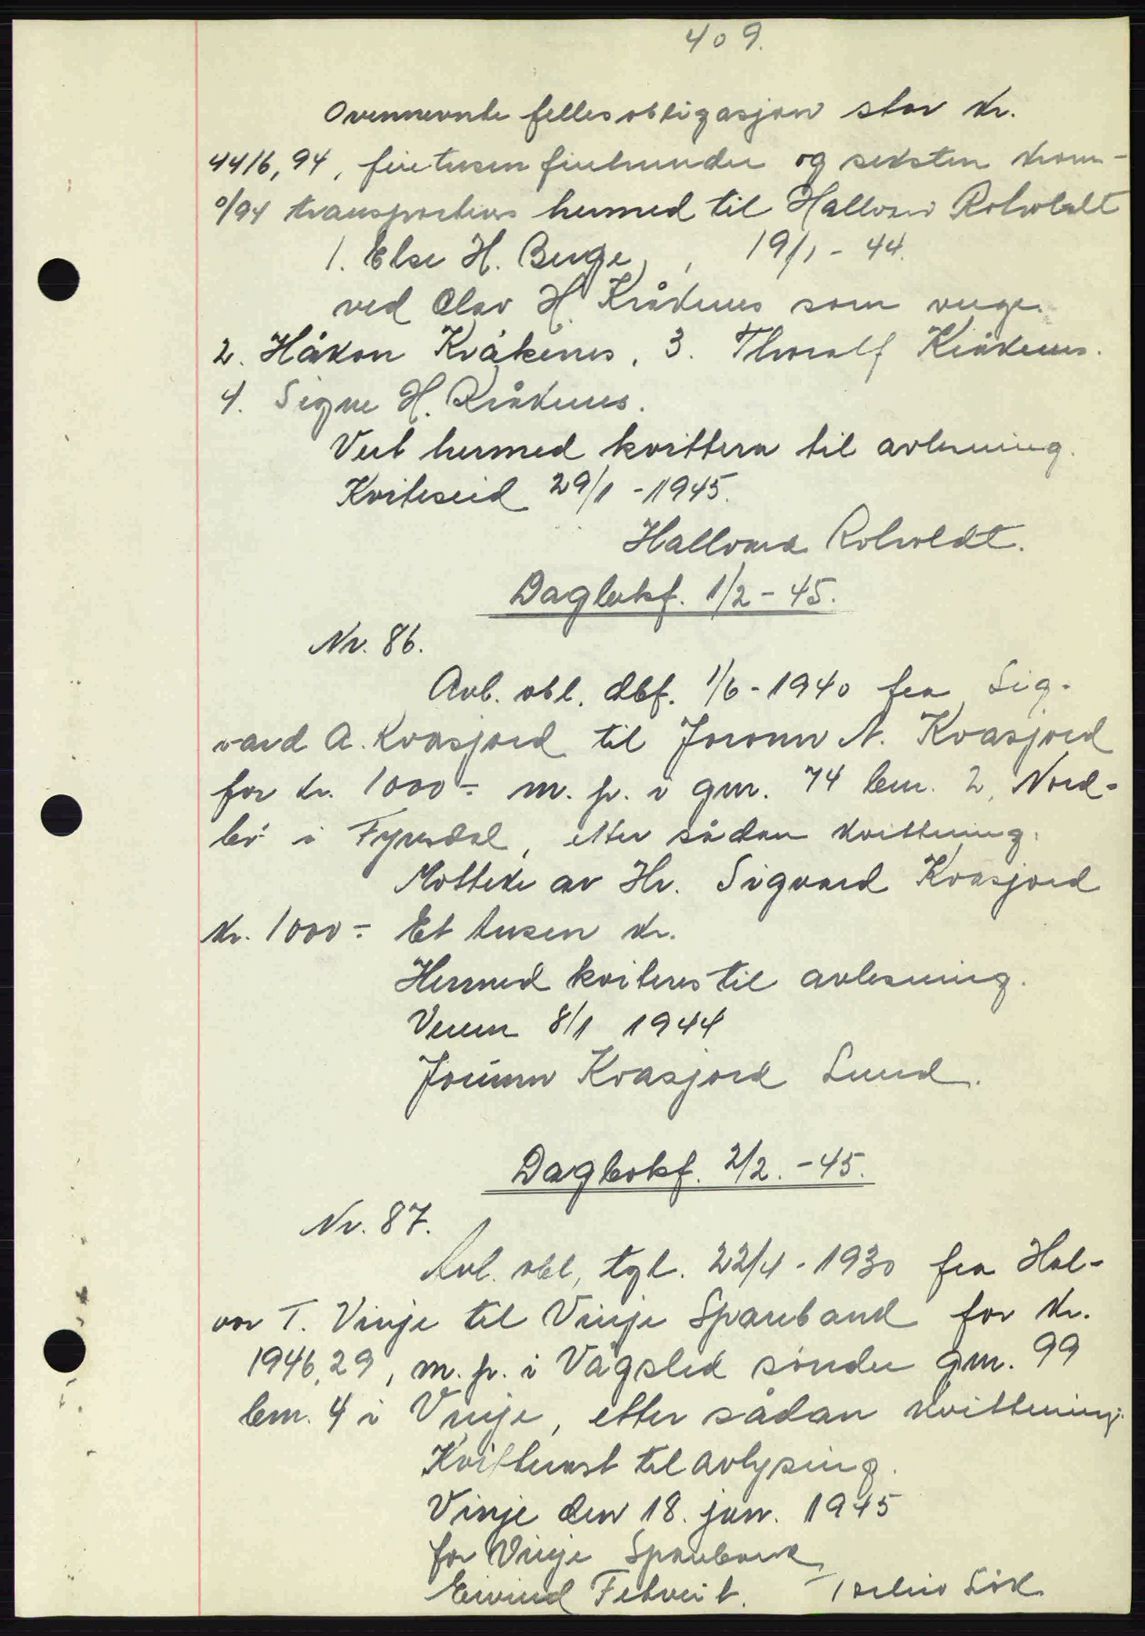 409.
Ovennevnte fellesobligasjon stor kr.
4416,94, firetusen firehundre og seksten kron-
o/94 transporteres hermed til Hallvard Roholdt
1. Else H. Berge, 19/1 - 44.
ved Olav H. Kråkenes som verge.
2. Håkon Kråkenes. 3. Thoralf Kråkenes.
4. Signe H. Kråkenes.
Vert hermed kvittera til avlesning.
Kviteseid 29/1 - 1945.
Hallvard Roholdt.
Dagbokf. 1/2 - 45.
Nr. 86.
Avl. obl. dbf. 1/6 - 1940 fra Sig-
vard A. Kvasjord til Jorunn N. Kvasjord
for kr. 1000.- m. p. i gnr. 74 bnr. 2, Nord-
bö i Fyresdal, etter sådan kvittering:
Motteke av Hr. Sigvard Kvasjord
kr. 1000.- Et tusen kr.
Hermed kviteres til avlesning.
8/1 1944
Jorunn Kvasjord Lund.
Dagbokf. 2/2. - 45.
Nr. 87.
Avl. obl. tgl. 22/4 - 1930 fra Hal-
vor T. Vinje til Vinje Sparebank for kr.
1946,29, m. p. i Vågsled söndre gnr. 99
bnr. 4 i Vinje, etter sådan kvittering:
Kvitterast til avlysing.
Vinje den 18. jan. 1945
for Vinje Sparebank
Eivind Fetveit.